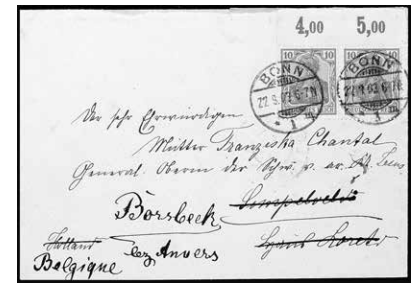 4,00 5,00
10 10 10 10
BONN BONN
22.9.03.6-7N
1
Der sehr Ehrwürdigen
Mutter Franziska Chantal
General Oberin der Schw. v. ar.
Borsbeek
Holland bez Anvers
Belgique